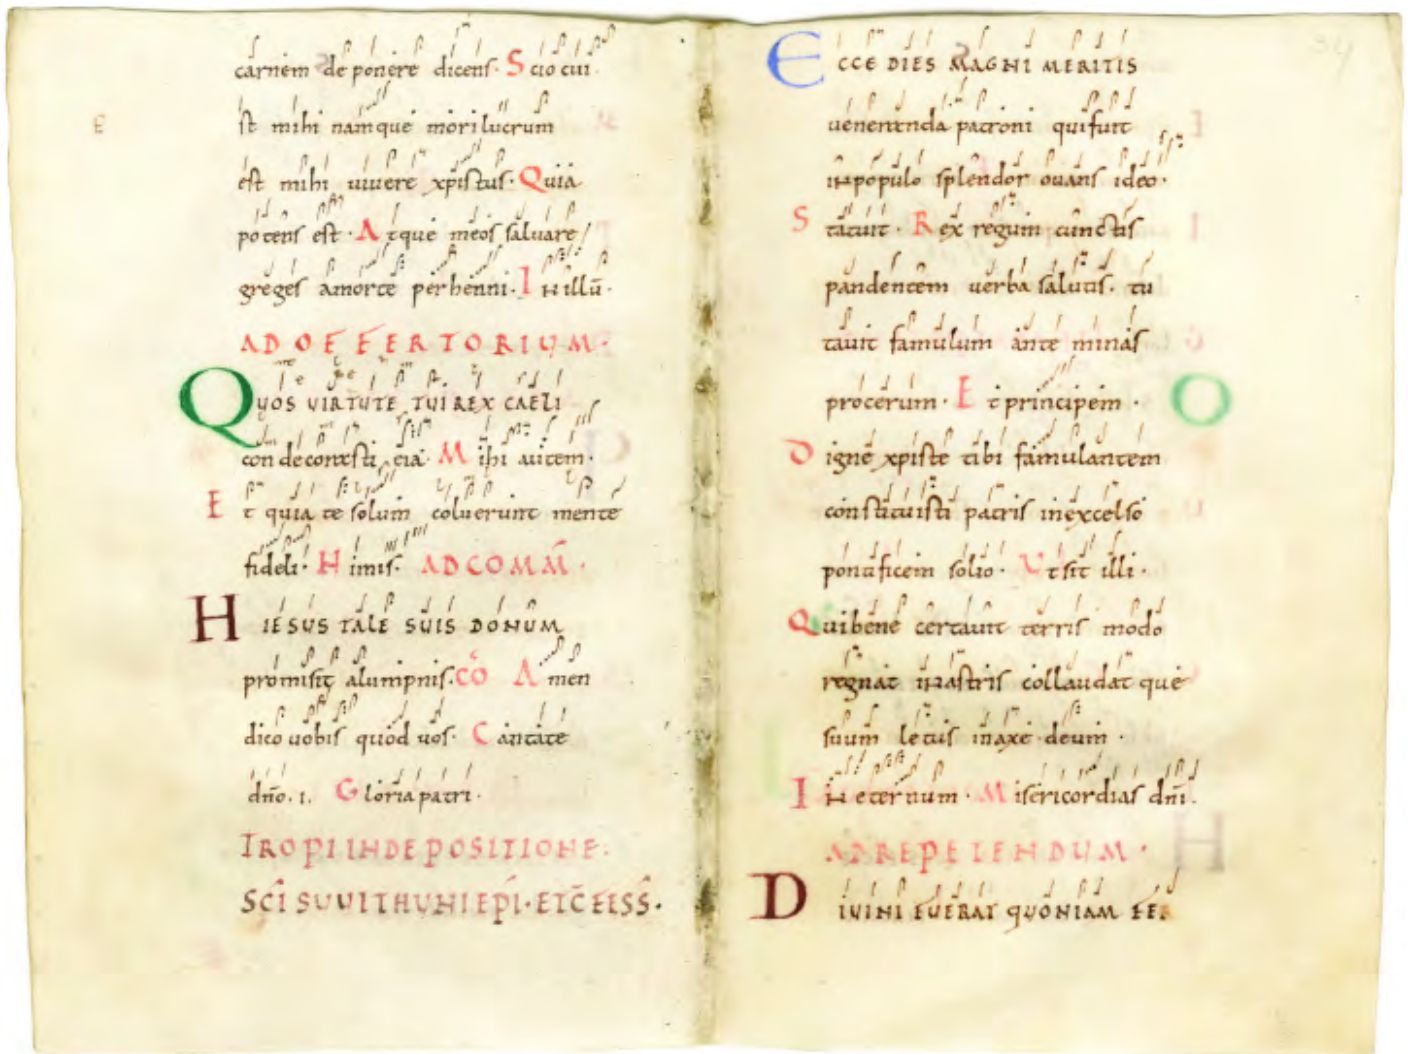 carnem deponere dicens· Scio cui
st mihi namque mori lucrum
est mihi uiuere xpistus· Quia
potens est· Atque meos saluare
greges a morte perhenni· In illū·
AD OFFERTORIUM·
QUOS VIRTUTE TUI REX CAELI
condecorasti eia· Mihi autem·
Et quia te solum coluerunt mente
fideli· Himis· AD COMM̄·
HIESUS TALE SUIS DONUM
promisit alumpnis· CŌ Amen
dico uobis quod uos· Cantate
dn̄o· i· Gloria patri·
TROPI IN DEPOSITIONE·
SC̄I SUUITHUNI EPĪ· ET C̄FESS̄·
34
ECCE DIES MAGNI MERITIS
ueneranda patroni qui fuit
in populo splendor ouans ideo·
Statuit· Rex regum cunctis
pandentem uerba salutis· tu
tauit famulum ante minas
procerum· Et principem·
Digne xpiste tibi famulantem
constituisti patris in excelso
pontificem solio· Ut sit illi·
Qui bene certauit terris modo
regnat in astris collaudat que
suum letus in axe deum·
In eternum· Misericordias dn̄i·
AD REPETENDUM·
DIUINI FUERAT QUONIAM FER